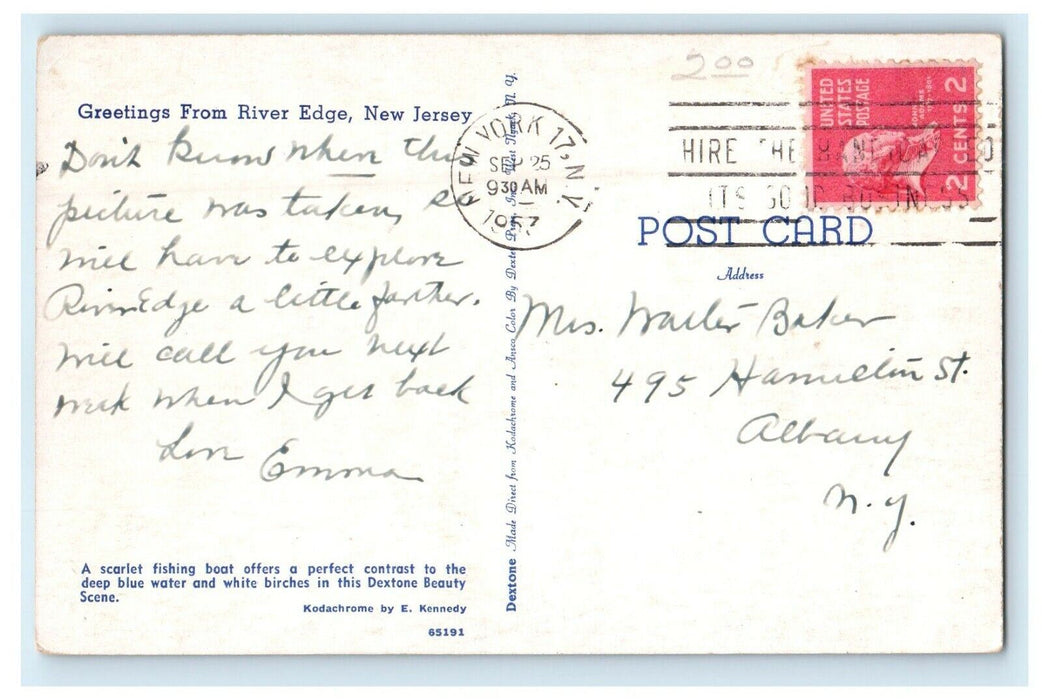 Greetings From River Edge, New Jersey
Don't know when this
picture was taken, so
will have to explore
River Edge a little farther.
Will call you next
week when I get back
Love Emma
A scarlet fishing boat offers a perfect contrast to the
deep blue water and white birches in this Dextone Beauty
Scene.
Kodachrome by E. Kennedy
65191
Dextone Made Direct from Kodachrome and Ansco Color By Dexter Press, Inc. West Nyack, N. Y.
2.00
NEW YORK 17, N.Y.
SEP 25
9 30 AM
1957
HIRE THE HANDICAPPED
IT'S GOOD BUSINESS
UNITED
STATES
POSTAGE
2 CENTS 2
POST CARD
Address
Mrs. Walter Baker
495 Hamilton St.
Albany
N.Y.